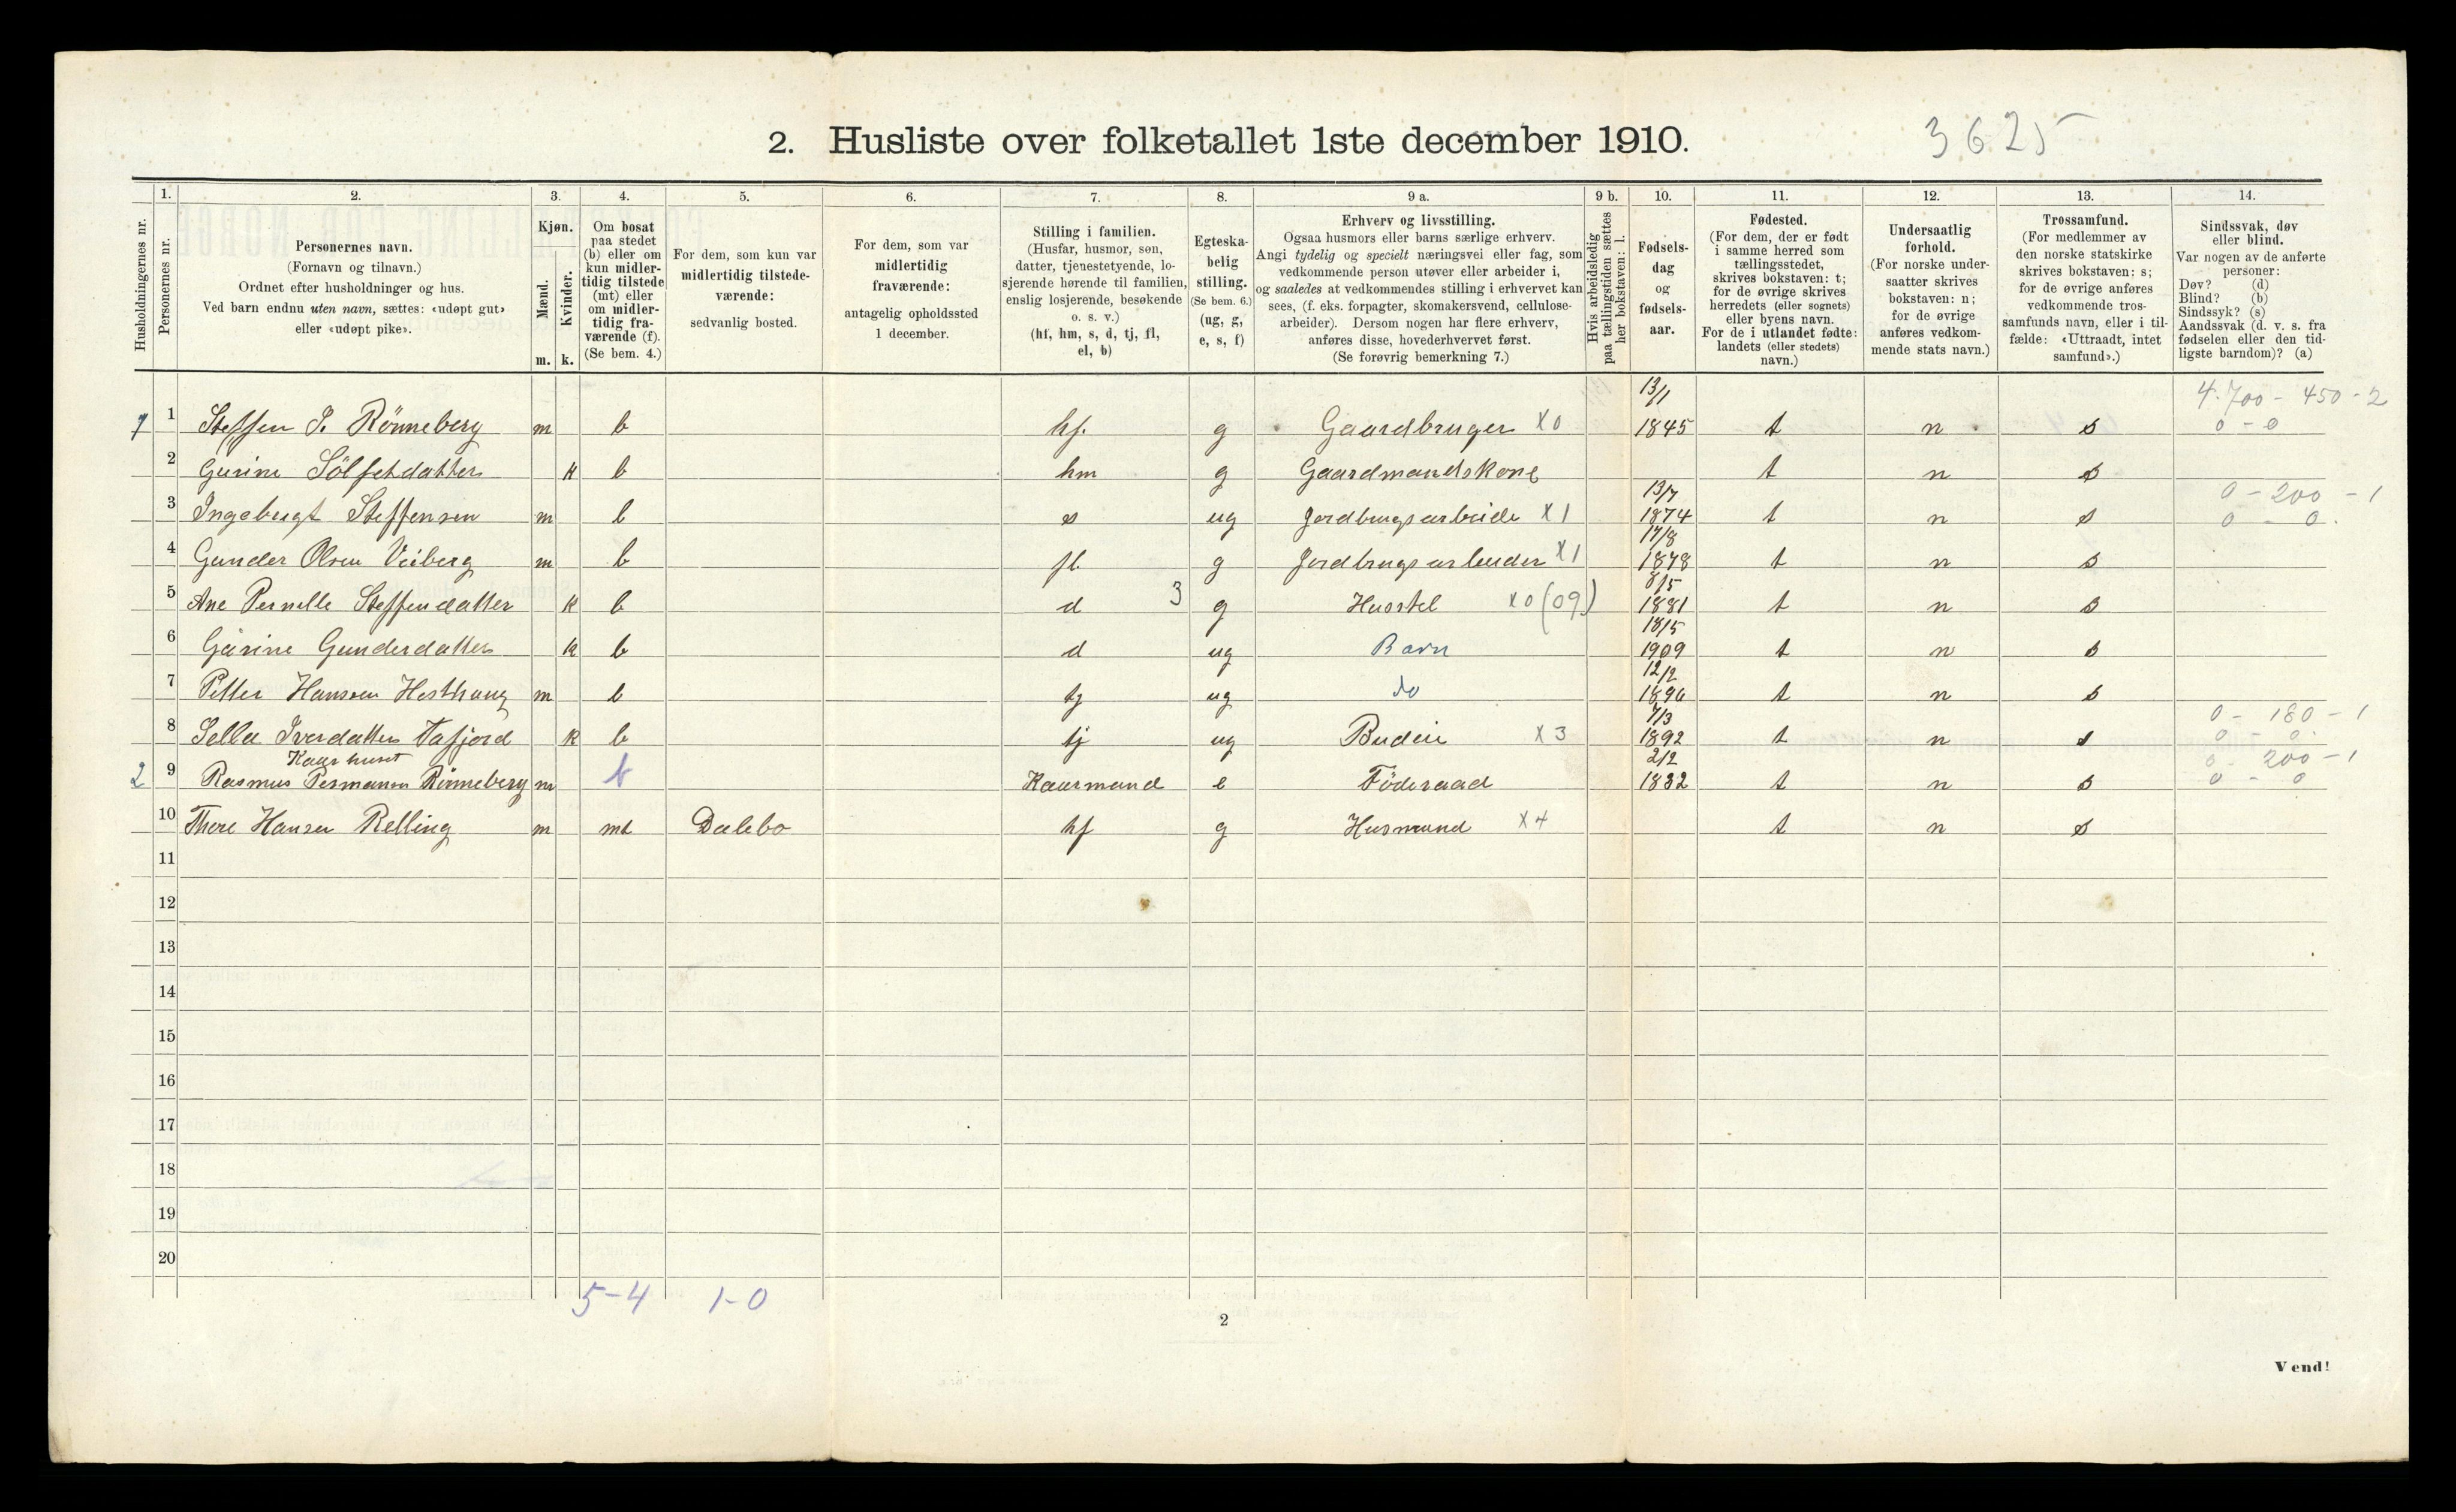 2. Husliste over folketallet 1ste december 1910.
3625
Husholdningernes nr.
1.
Personernes nr.
2.
Personernes navn.
(Fornavn og tilnavn.)
Ordnet efter husholdninger og hus.
Ved barn endnu uten navn, sættes: «udøpt gut»
eller «udøpt pike».
3.
Kjøn.
Mænd.
Kvinder.
m. k.
4.
Om bosat
paa stedet
(b) eller om
kun midler-
tidig tilstede
(mt) eller
om midler-
tidig fra-
værende (f).
(Se bem. 4.)
5.
For dem, som kun var
midlertidig tilstede-
værende:
sedvanlig bosted.
6.
For dem, som var
midlertidig
fraværende:
antagelig opholdssted
1 december.
7.
Stilling i familien.
(Husfar, husmor, søn,
datter, tjenestetyende, lo-
sjerende hørende til familien,
enslig losjerende, besøkende
o. s. v.)
(hf, hm, s, d, tj, fl,
el, b)
8.
Egteska-
belig
stilling.
(Se bem. 6.)
(ug, g,
e, s, f)
9 a.
Erhverv og livsstilling.
Ogsaa husmors eller barns særlige erhverv.
Angi tydelig og specielt næringsvei eller fag, som
vedkommende person utøver eller arbeider i,
og saaledes at vedkommendes stilling i erhvervet kan
sees, (f. eks. forpagter, skomakersvend, cellulose-
arbeider). Dersom nogen har flere erhverv,
anføres disse, hovederhvervet først.
(Se forøvrig bemerkning 7.)
9 b.
Hvis arbeidsledig
paa tællingstiden sættes
her bokstaven: l.
10.
Fødsels-
dag
og
fødsels-
aar.
11.
Fødested.
(For dem, der er født
i samme herred som
tællingsstedet,
skrives bokstaven: t;
for de øvrige skrives
herredets (eller sognets)
eller byens navn.
For de i utlandet fødte:
landets (eller stedets)
navn.)
12.
Undersaatlig
forhold.
(For norske under-
saatter skrives
bokstaven: n;
for de øvrige
anføres vedkom-
mende stats navn.)
13.
Trossamfund.
(For medlemmer av
den norske statskirke
skrives bokstaven: s;
for de øvrige anføres
vedkommende tros-
samfunds navn, eller i til-
fælde: «Uttraadt, intet
samfund».)
14.
Sindssvak, døv
eller blind.
Var nogen av de anførte
personer:
Døv? (d)
Blind? (b)
Sindssyk? (s)
Aandssvak (d. v. s. fra
fødselen eller den tid-
ligste barndom)? (a)
1 1 Steffen I. Rönneberg m b hf. g Gaardbruger X0 13/1 1845 t n s 4.700 - 450 - 2
0 - 0
2 Gurine Sölfetdatter k b hm g Gaardmandskone t n s
3 Ingebrigt Steffensen m b s ug Jordbrugsarbeide X1 13/7 1874 t n s 0 - 200 - 1
0 - 0.
4 Gunder Olsen Veiberg m b fl g Jordbrugsarbeider X1 17/8 1878 t n s
5 Ane Pernille Steffendatter k b d 3 g Husstel X0 (09) 8/5 1881 t n s
6 Gurine Gunderdatter k b d ug Barn 18/5 1909 t n s
7 Petter Hansen Hesthaug m b tj ug do 12/2 1896 t n s
8 Sella Iverdatter Tafjord k b tj ug Budeie X3 7/3 1892 t n s 0 - 180 - 1
0 - 0.
Kaarhuset
2 9 Rasmus Permansen Rönneberg m b Kaarmand e Föderaad 2/2 1832 t n s 0 - 200 - 1
0 - 0
10 Thore Hansen Relling m mt Dalebo hf g Husmand X4 t n s
11
12
13
14
15
16
17
18
19
20
5-4 1-0
2
Vend!